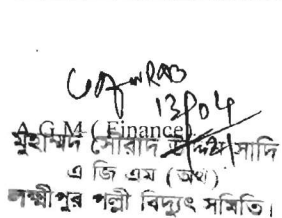 13/04
A.G.M ( Finance)
মুহাম্মদ সাদি
এ জি এম (অর্থ)
লক্ষ্মীপুর পল্লী বিদ্যুৎ সমিতি।